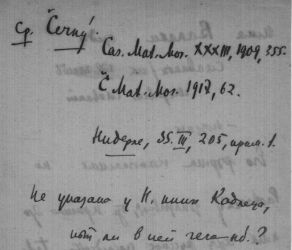 Ср. Černý:
Čas. Mat. Mor. XXXIII, 1909, 255.
Č Mat. Mor. 1917, 62.
Нидерле, SS. III, 205, прим. 1.
Не указано у К. книги Кадлеца,
нет ли в ней чего-ниб.?